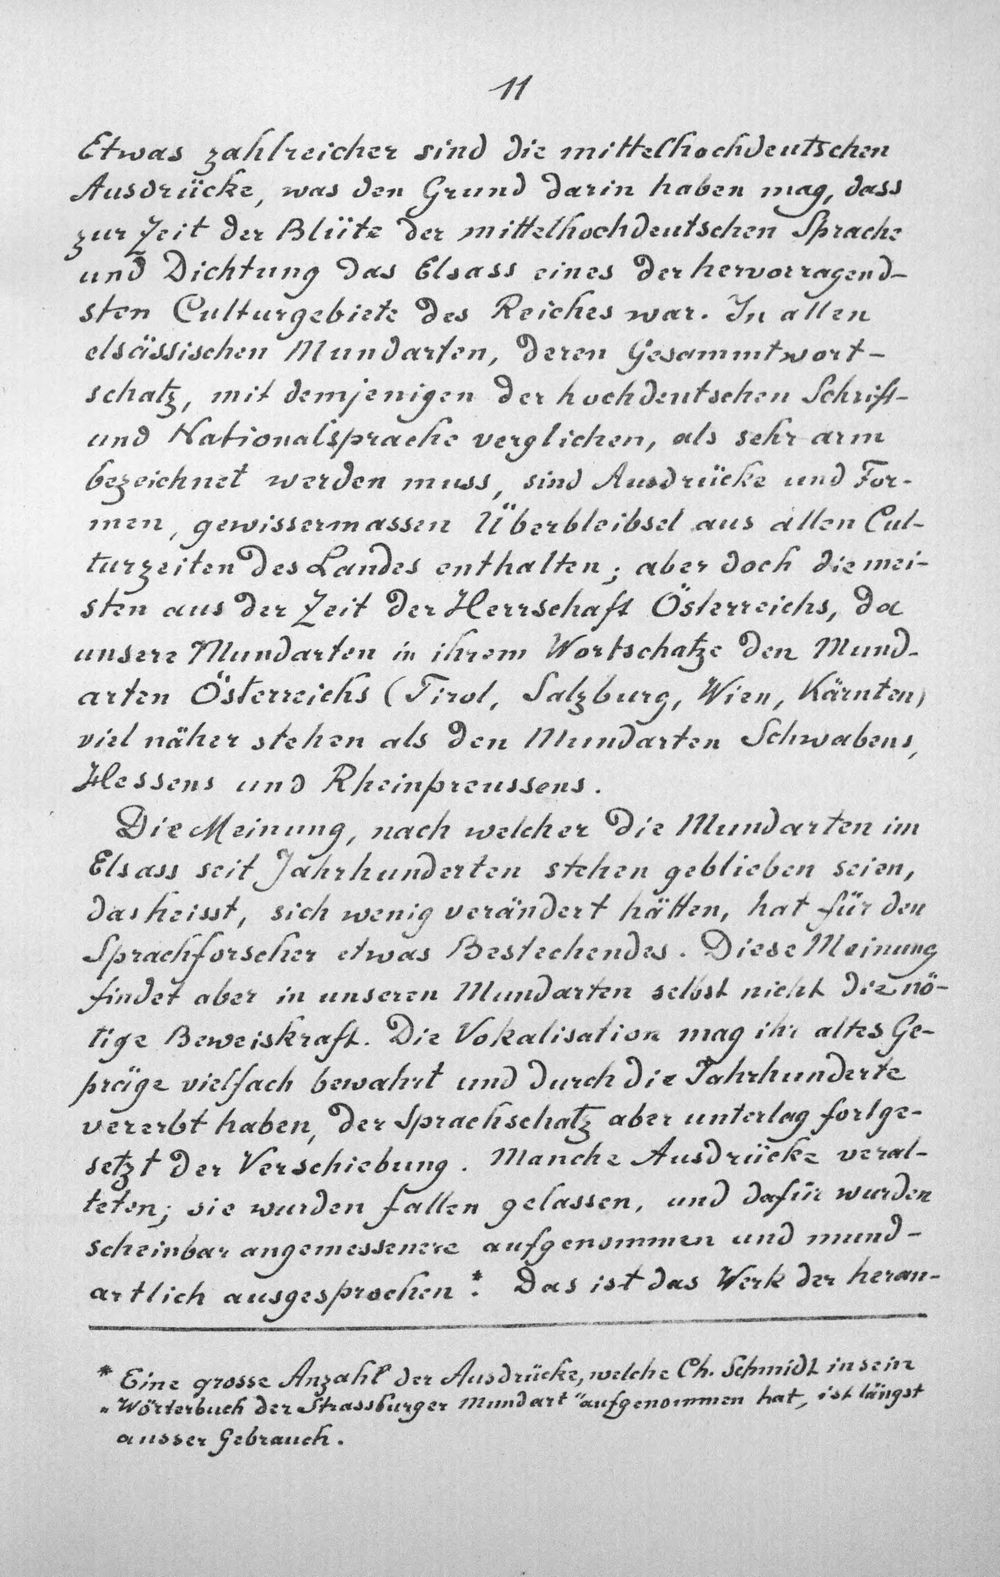 11
Etwas zahlreicher sind die mittelhochdeutschen
Ausdrücke, was den Grund darin haben mag, dass
zur Zeit der Blüte der mittelhochdeutschen Sprache
und Dichtung das Elsass eines der hervorragend-
sten Culturgebiete des Reiches war. In allen
elsässischen Mundarten, deren Gesammtwort-
schatz, mit demjenigen der hochdeutschen Schrift-
und Nationalsprache verglichen, als sehr arm
bezeichnet werden muss, sind Ausdrücke und For-
men, gewissermassen Überbleibsel aus allen Cul-
turzeiten des Landes enthalten; aber doch die mei-
sten aus der Zeit der Herrschaft Österreichs, da
unsere Mundarten in ihrem Wortschatze den Mund-
arten Österreichs (Tirol, Salzburg, Wien, Kärnten)
viel näher stehen als den Mundarten Schwabens,
Hessens und Rheinpreussens.
Die Meinung, nach welcher die Mundarten im
Elsass seit Jahrhunderten stehen geblieben seien,
das heisst, sich wenig verändert hätten, hat für den
Sprachforscher etwas Bestechendes. Diese Meinung
findet aber in unseren Mundarten selbst nicht die nö-
tige Beweiskraft. Die Vokalisation mag ihr altes Ge-
präge vielfach bewahrt und durch die Jahrhunderte
vererbt haben, der Sprachschatz aber unterlag fortge-
setzt der Verschiebung. Manche Ausdrücke veral-
teten; sie wurden fallen gelassen, und dafür wurden
scheinbar angemessenere aufgenommen und mund-
artlich ausgesprochen*. Das ist das Werk der heran-
* Eine grosse Anzahl der Ausdrücke, welche Ch. Schmidt in sein
„Wörterbuch der Strassburger Mundart“ aufgenommen hat, ist längst
ausser Gebrauch.